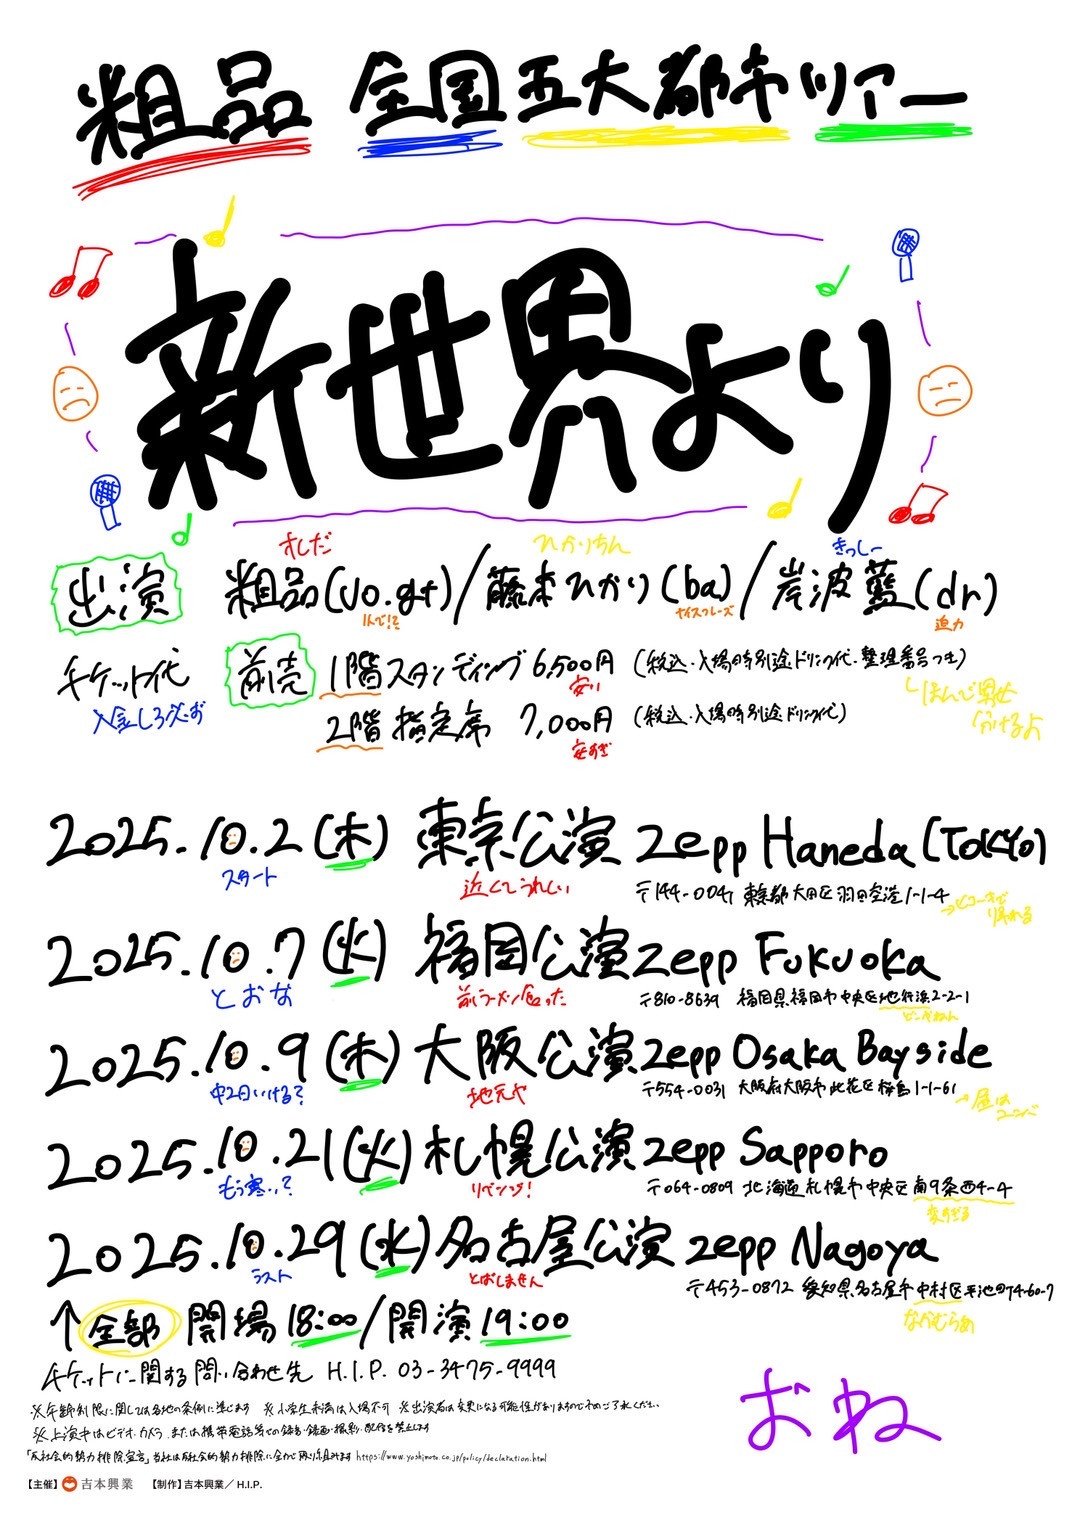 粗品 全国五大都市ツアー
新世界より
そしだ ひかりちん きっしー
出演 粗品(vo.gt)/藤本ひかり(ba)/岸波藍(dr)
1人で!? ナイスフレーズ 迫力
チケット代 前売 1階スタンディング 6,500円 (税込・入場時別途ドリンク代・整理番号つき)
安い
2階指定席 7,000円 (税込・入場時別途ドリンク代)
安すぎ
2025.10.2(木) 東京公演 Zepp Haneda(TOKYO)
スタート 近くてうれしい
〒144-0041 東京都大田区羽田空港1-1-4
2025.10.7(火) 福岡公演 Zepp Fukuoka
とおな
〒810-8639 福岡県福岡市中央区地行浜2-2-1
2025.10.9(木) 大阪公演 Zepp Osaka Bayside
中2日いける? 地元や
〒554-0031 大阪府大阪市此花区桜島1-1-61
2025.10.21(火) 札幌公演 Zepp Sapporo
もう寒い? リベンジ!
〒064-0809 北海道札幌市中央区南9条西4-4
2025.10.29(水) 名古屋公演 Zepp Nagoya
ラスト とばしません
〒453-0872 愛知県名古屋市中村区平池町4-60-7
なかむらぁ
↑全部 開場18:00/開演19:00
チケットに関する問い合わせ先 H.I.P. 03-3475-9999
おね
※年齢制限に関しては各地の条例に準じます ※小学生未満は入場不可 ※出演者は変更になる可能性がありますので予めご了承ください。
※上演中はビデオ・カメラ、または携帯電話等での録音・録画・撮影・配信を禁止します
「反社会的勢力排除宣言」当社は反社会的勢力排除に全力で取り組みます https://www.yoshimoto.co.jp/policy/declaration.html
【主催】吉本興業 【制作】吉本興業／H.I.P.